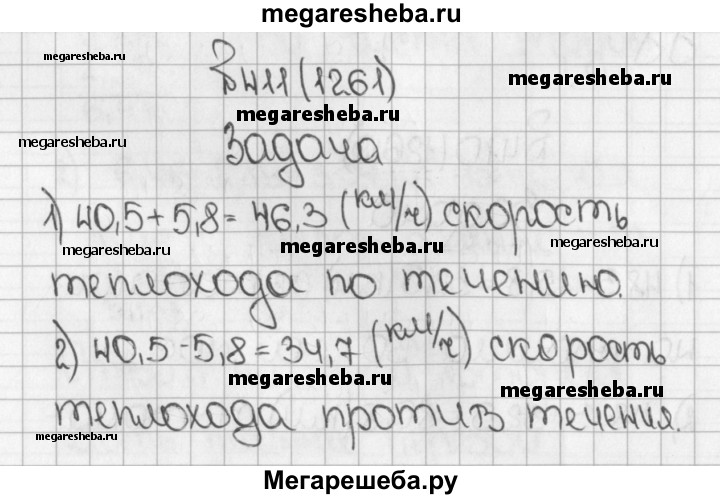 megaresheba.ru
megaresheba.ru
В411(1261)
megaresheba.ru
megaresheba.ru
megaresheba.ru
Задача
1) 40,5+5,8=46,3 (км/ч) скорость
megaresheba.ru
megaresheba.ru
теплохода по течению.
2) 40,5-5,8=34,7 (км/ч) скорость
megaresheba.ru
megaresheba.ru
теплохода против течения.
megaresheba.ru
Мегарешеба.ру